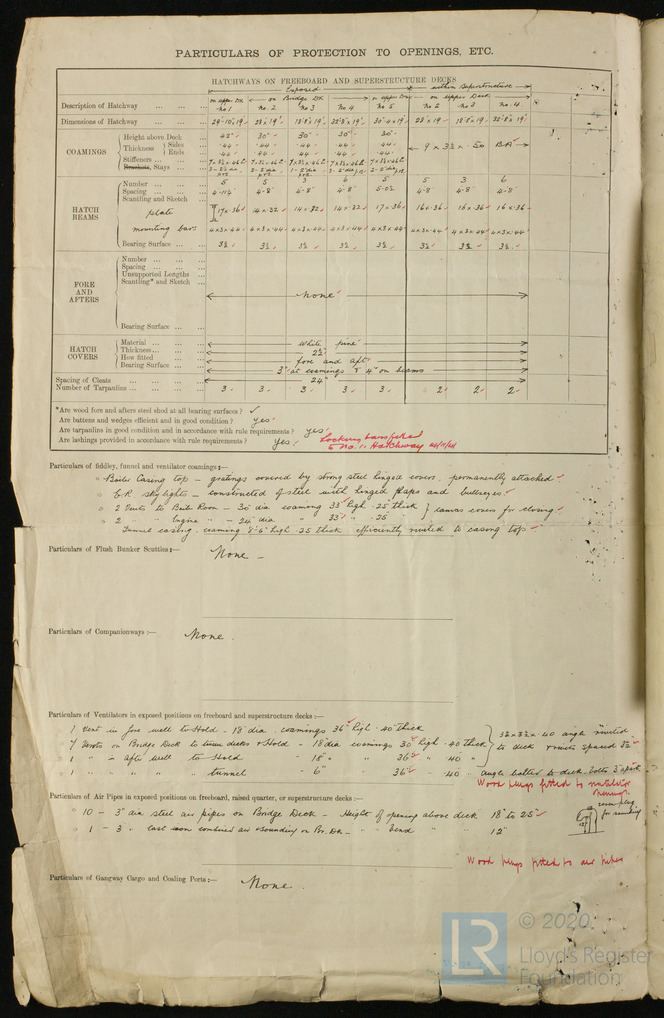 PARTICULARS OF PROTECTION TO OPENINGS, ETC.
HATCHWAYS ON FREEBOARD AND SUPERSTRUCTURE DECKS
Exposed within Superstructure
on upper Dk on Bridge Dk on upper Dk on upper Deck
Description of Hatchway ... ... ... No 1 No. 2 No 3 No 4 No 5 No 2 No 3 No. 4
Dimensions of Hatchway ... ... ... 29'-10"x19' 28'x19' 18'8"x19' 32'8"x19' 30'4"x19' 28'x19' 18'8"x19' 32'8"x19'
COAMINGS
Height above Deck ... 42" 30" 30" 30" 30"
Thickness Sides ... .44 .44 .44 .44 .44 9 x 3½ x .50 BA
Ends ... .44 .44 .44 .44 .44
Stiffeners ... ... ...
Brackets, Stays ... ...
HATCH BEAMS
Number ... ... ... ... 5 5 3 6 5 5 3 6
Spacing ... ... ... 4-11½ 4-8 4-8 4-8 5-0½ 4-8 4-8 4-8
Scantling and Sketch ...
plate 17 x .36 14 x .32 14 x .32 14 x .32 17 x .36 16 x .36 16 x .36 16 x .36
mounting bars 4x3x.44 4x3x.44 4x3x.44 4x3x.44 4x3x.44 4x3x.44 4x3x.44 4x3x.44
Bearing Surface ... ... 3½ 3½ 3½ 3½ 3½ 3½ 3½ 3½
FORE AND AFTERS
Number ... ... ... ...
Spacing ... ... ... ...
Unsupported Lengths ...
Scantling* and Sketch ...
None
Bearing Surface ... ...
HATCH COVERS
Material ... ... ... white pine
Thickness... ... ... 2½"
How fitted ... ... fore and aft
Bearing Surface ... ... 3" at coamings & 4" on beams
Spacing of Cleats ... ... ... ... 24"
Number of Tarpaulins ... ... ... ... 3 3 3 3 3 2 2 2
*Are wood fore and afters steel shod at all bearing surfaces? ✓
Are battens and wedges efficient and in good condition? yes
Are tarpaulins in good condition and in accordance with rule requirements? yes
Are lashings provided in accordance with rule requirements? yes Locking bars fitted
to No. 1. Hatchway
Particulars of fiddley, funnel and ventilator coamings:—
Boiler Casing top - gratings covered by strong steel hinged covers, permanently attached
E.R. skylights - constructed of steel with hinged flaps and bullseyes
2 Vents to Boiler Room - 36" dia coaming 33" high .25 thick } canvas covers for closing
2 " " Engine " - 24" dia " 33" " .25
Funnel casing, coaming 8'-6" high .25 thick efficiently riveted to casing top
Particulars of Flush Bunker Scuttles:— None -
Particulars of Companionways:— None.
Particulars of Ventilators in exposed positions on freeboard and superstructure decks:—
1 Vent in fore well to Hold - 18" dia coamings 36" high .40 thick
7 Vents on Bridge Deck to tween decks & Hold - 18 dia coamings 30" high .40 thick } 3½ x 3½ x .40 angle riveted to deck rivets spaced 3½"
1 " in after well to Hold - 18" " 36" " .40 "
1 " " " " tunnel - 6" " 36" - .40 " angle bolted to deck. bolts 3" apart
Wood plugs fitted to ventilator
Particulars of Air Pipes in exposed positions on freeboard, raised quarter, or superstructure decks:—
10 - 3" dia steel air pipes on Bridge Deck - Height of opening above deck 18" to 25"
1 - 3 " cast iron combined air & sounding on Br. Dk - " " bend " " 12"
for sounding
Wood plugs fitted to air pipes
Particulars of Gangway Cargo and Coaling Ports:— None.
LR
© 2020
Lloyd's Register
Foundation